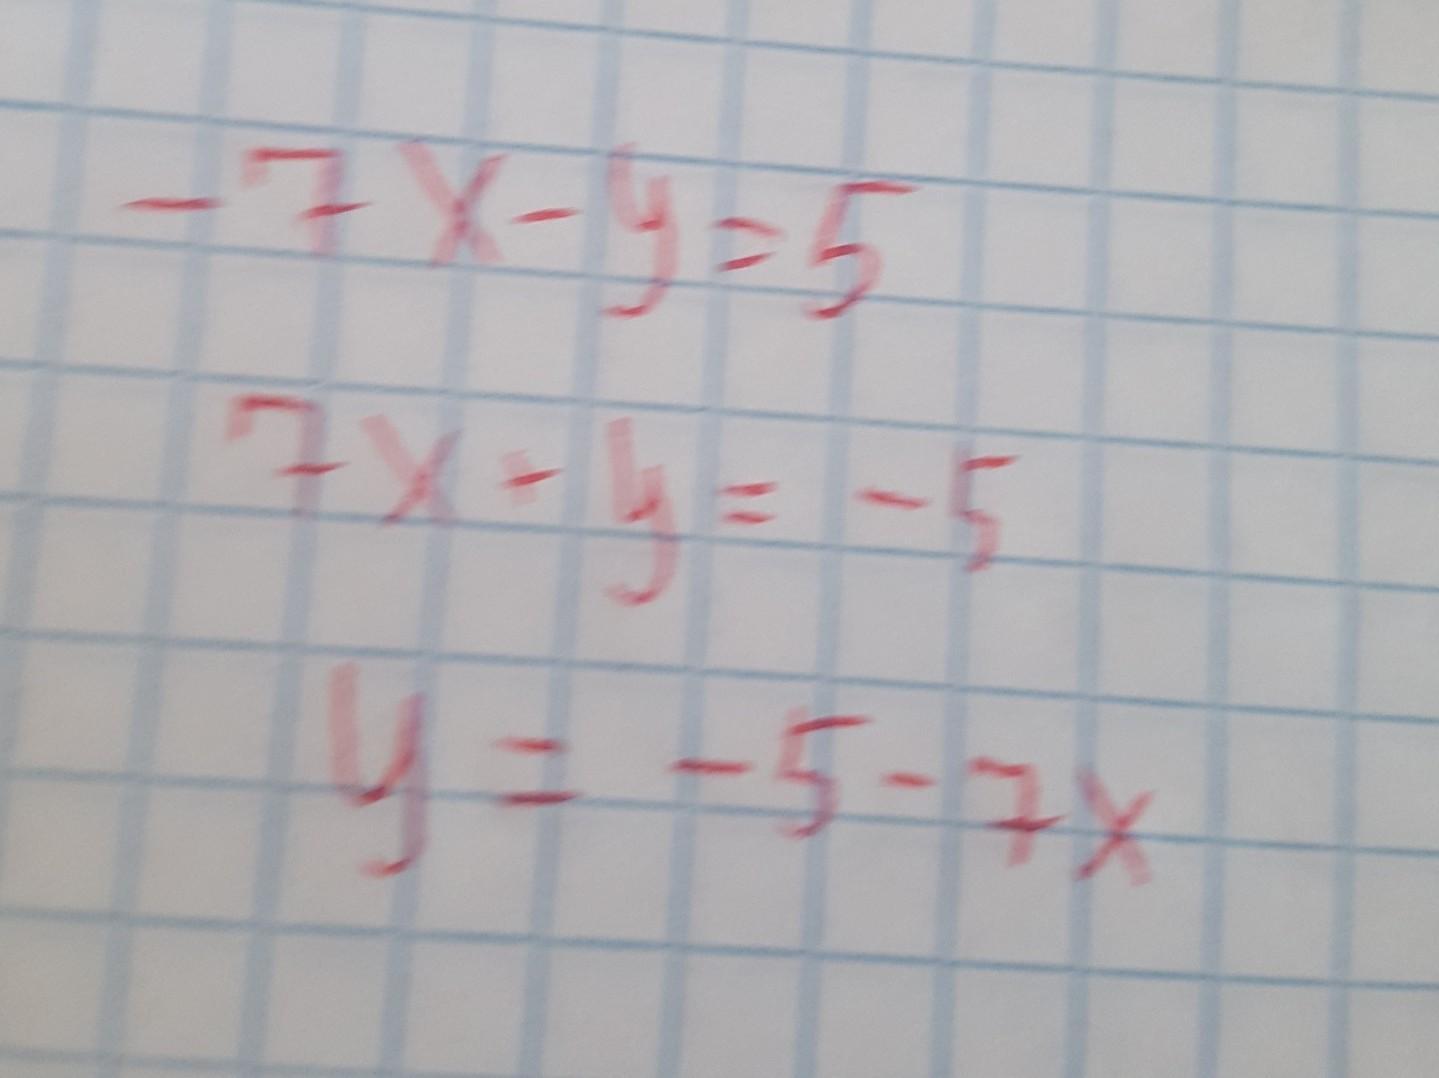 -7x-y=5
7x+y=-5
y=-5-7x